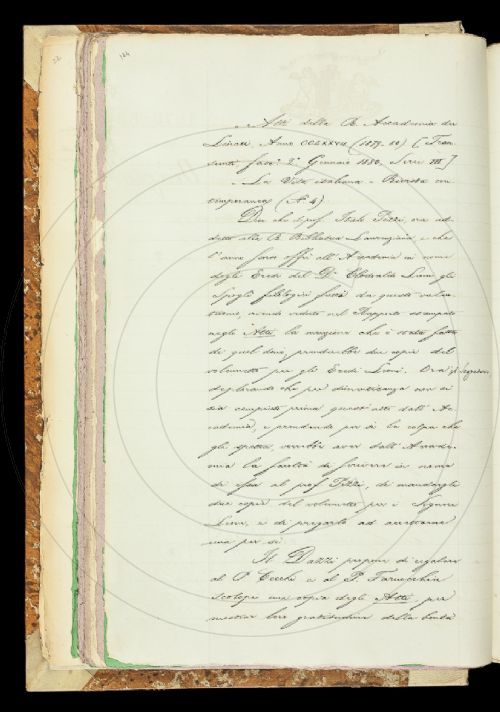 184
"Atti della R. Accademia dei
Lincei. Anno CCLXXVII (1879-80) [Tran
sunti fasc. 2° Gennaio 1880. Serie III]
"La Vita italiana" Rivista con
temporanea (N. 4)
Dice che il prof. Italo Pizzi, ora ad-
detto alla R. Biblioteca Laurenziana, e che
l'anno
offrì all'Accademia in nome
degli Eredi del D. Lioni gli
Spogli filologici fatti da questo valen-
tuomo, avendo veduto nel Rapporto stampato
negli Atti la menzione che è stata fatta
di quel dono, prenderebbe due copie del
volumetto per gli Eredi Lioni. Ora il Segretario
deplorando che per dimenticanza non si
sia compiuto prima questo atto dall'Ac-
cademia, e prendendo per sè la colpa che
gli spetta, vorrebbe aver dall'Accade-
mia la facoltà di scrivere in nome
di essa al prof. Pizzi, di mandargli
due copie del volumetto per i Signori
Lioni, e di pregarlo ad accettarne
una per sè.
Il Dazzi propone di regalare
al P. Cecchi e al P.
Scolopi una copia degli Atti, per
mostrar loro gratitudine della bontà